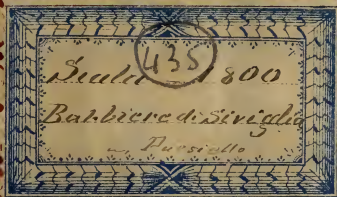 435
Scala 1800
Barbiere di Siviglia
Paisiello